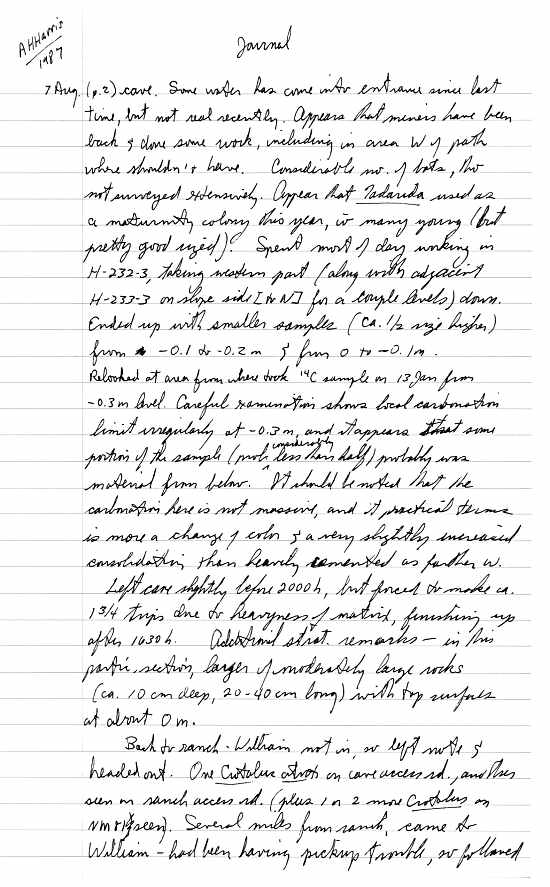 AHHarris
1987
Journal
7 Aug. (p.2) cave. Some water has come into entrance since last
time, but not real recently. Appears that miners have been
back & done some work, including in area W of path
where shouldn't have. Considerable no. of bats, tho
not surveyed extensively. Appear that Tadarida used as
a maturnity colony this year, w many young (but
pretty good sized). Spent most of day working in
H-232-3, taking western part (along with adjacent
H-233-3 on slope side [to N] for a couple levels) down.
Ended up with smaller samples (ca. 1/2 size higher)
from -0.1 to -0.2 m & from 0 to -0.1m.
Relooked at area from where took 14C sample on 13 Jan from
-0.3m level. Careful examination shows local carbonation
limit irregularly at -0.3m, and it appears that some
portion of the sample (prob. considerably less than half) probably was
material from below. It should be noted that the
carbonation here is not massive, and it practical terms
is more a change of color & a very slightly increased
consolidation than heavily cemented as further W.
Left cave slightly before 2000h, but forced to make ca.
1 3/4 trips due to heavyness of matrix, finishing up
after 1630h. Additional strat. remarks — in this
partic. section, larger of moderately large rocks
(ca. 10 cm deep, 20-40 cm long) with top surfaces
at about 0 m.
Back to ranch - William not in, so left note &
headed out. One Crotalus atrox on cave access rd., another
seen on ranch access rd. (plus 1 or 2 more Crotalus on
seen). Several miles from ranch, came to
William - had been having pickup trouble, so followed